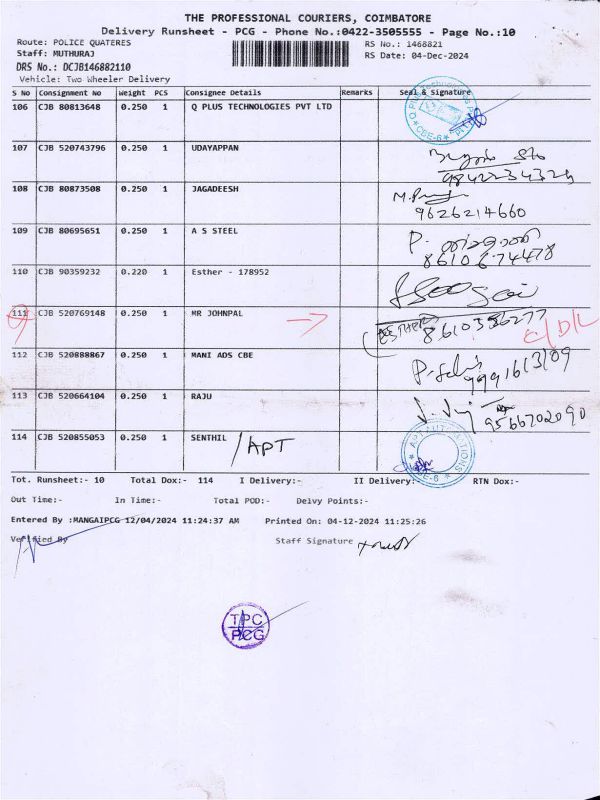 THE PROFESSIONAL COURIERS, COIMBATORE
Delivery Runsheet - PCG - Phone No.:0422-3505555 - Page No.:10
Route: POLICE QUATERES
RS No.: 1468821
Staff: MUTHURAJ
RS Date: 04-Dec-2024
DRS No.: DCJB146882110
Vehicle: Two Wheeler Delivery
S No Consignment No Weight PCS Consignee Details Remarks Seal & Signature
106 CJB 80813648 0.250 1 Q PLUS TECHNOLOGIES PVT LTD
CBE-6
107 CJB 520743796 0.250 1 UDAYAPPAN
9842234324
108 CJB 80873508 0.250 1 JAGADEESH
9626214660
109 CJB 80695651 0.250 1 A S STEEL
P.
8610674478
110 CJB 90359232 0.220 1 Esther - 178952
111 CJB 520769148 0.250 1 MR JOHNPAL
112 CJB 520888867 0.250 1 MANI ADS CBE
113 CJB 520664104 0.250 1 RAJU
9566702090
114 CJB 520855053 0.250 1 SENTHIL /APT
CBE-6
Tot. Runsheet:- 10 Total Dox:- 114 I Delivery:- II Delivery:- RTN Dox:-
Out Time:- In Time:- Total POD:- Delvy Points:-
Entered By :MANGAIPCG 12/04/2024 11:24:37 AM Printed On: 04-12-2024 11:25:26
Verified By Staff Signature
TPC
PCG